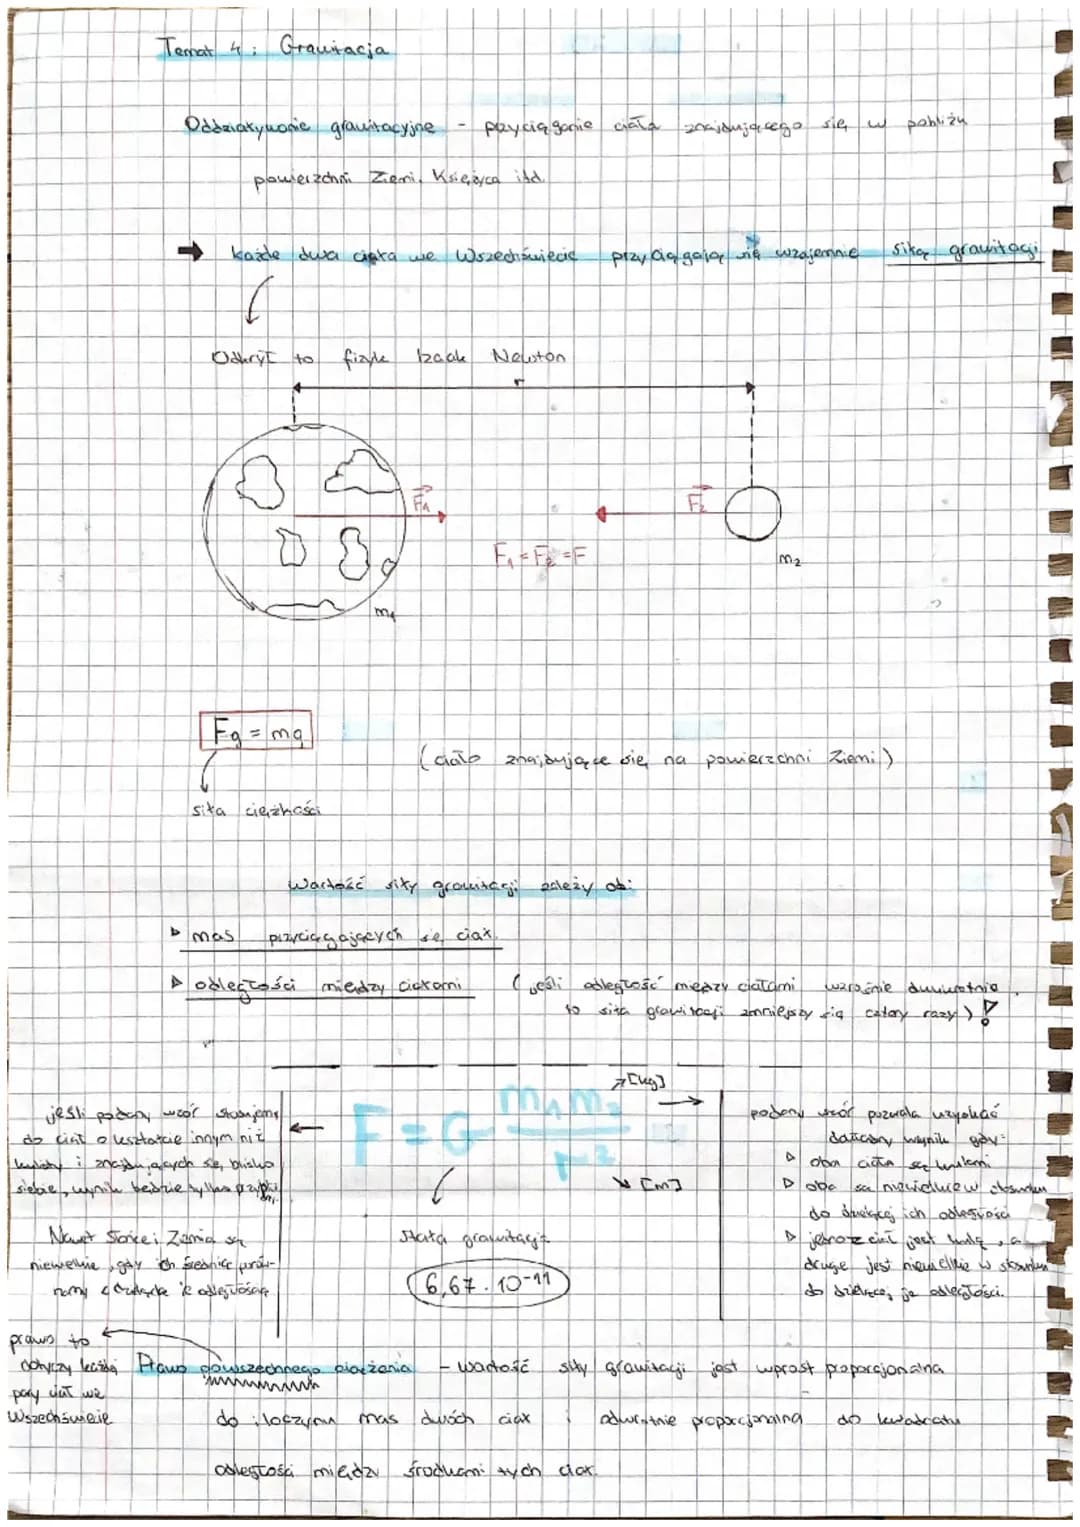 Temat 4: Grawitacja
Oddziaływanie grawitacyjne - przyciąganie ciała znajdującego się w pobliżu
powierzchni Ziemi, Księżyca itd.
każde dwa ciała we Wszechświecie przyciągają się wzajemnie siłą grawitacji
Odkrył to fizyk Izaak Newton
r
F₁
F₂
F₁ = F₂ = F
m₂
m₁
Fg = mg
(ciało znajdujące się na powierzchni Ziemi)
siła ciężkości
Wartość siły grawitacji zależy od:
mas przyciągających się ciał.
odległości między ciałami (jeśli odległość między ciałami wzrośnie dwukrotnie
to siła grawitacji zmniejszy się cztery razy)!
[kg]
F = G m₁m₂
r²
[m]
stała grawitacji
6,67 · 10⁻¹¹
jeśli podany wzór stosujemy
do ciał o kształcie innym niż
kulisty i znajdujących się blisko
siebie, wynik będzie tylko
Nawet Słońce i Ziemia są
niewielkie, gdy ich średnice porów-
namy z odległością
podany wzór pozwala uzyskać
wynik gdy:
oba ciała są kulami
oba są niewielkie w stosunku
do dzielącej ich odległości
jedno z ciał jest kulą, a
drugie jest niewielkie w stosunku
do dzielącej je odległości.
prawo to
dotyczy każdej
pary ciał we
Wszechświecie
Prawo powszechnego ciążenia - wartość siły grawitacji jest wprost proporcjonalna
do iloczynu mas dwóch ciał i odwrotnie proporcjonalna do kwadratu
odległości między środkami tych ciał.